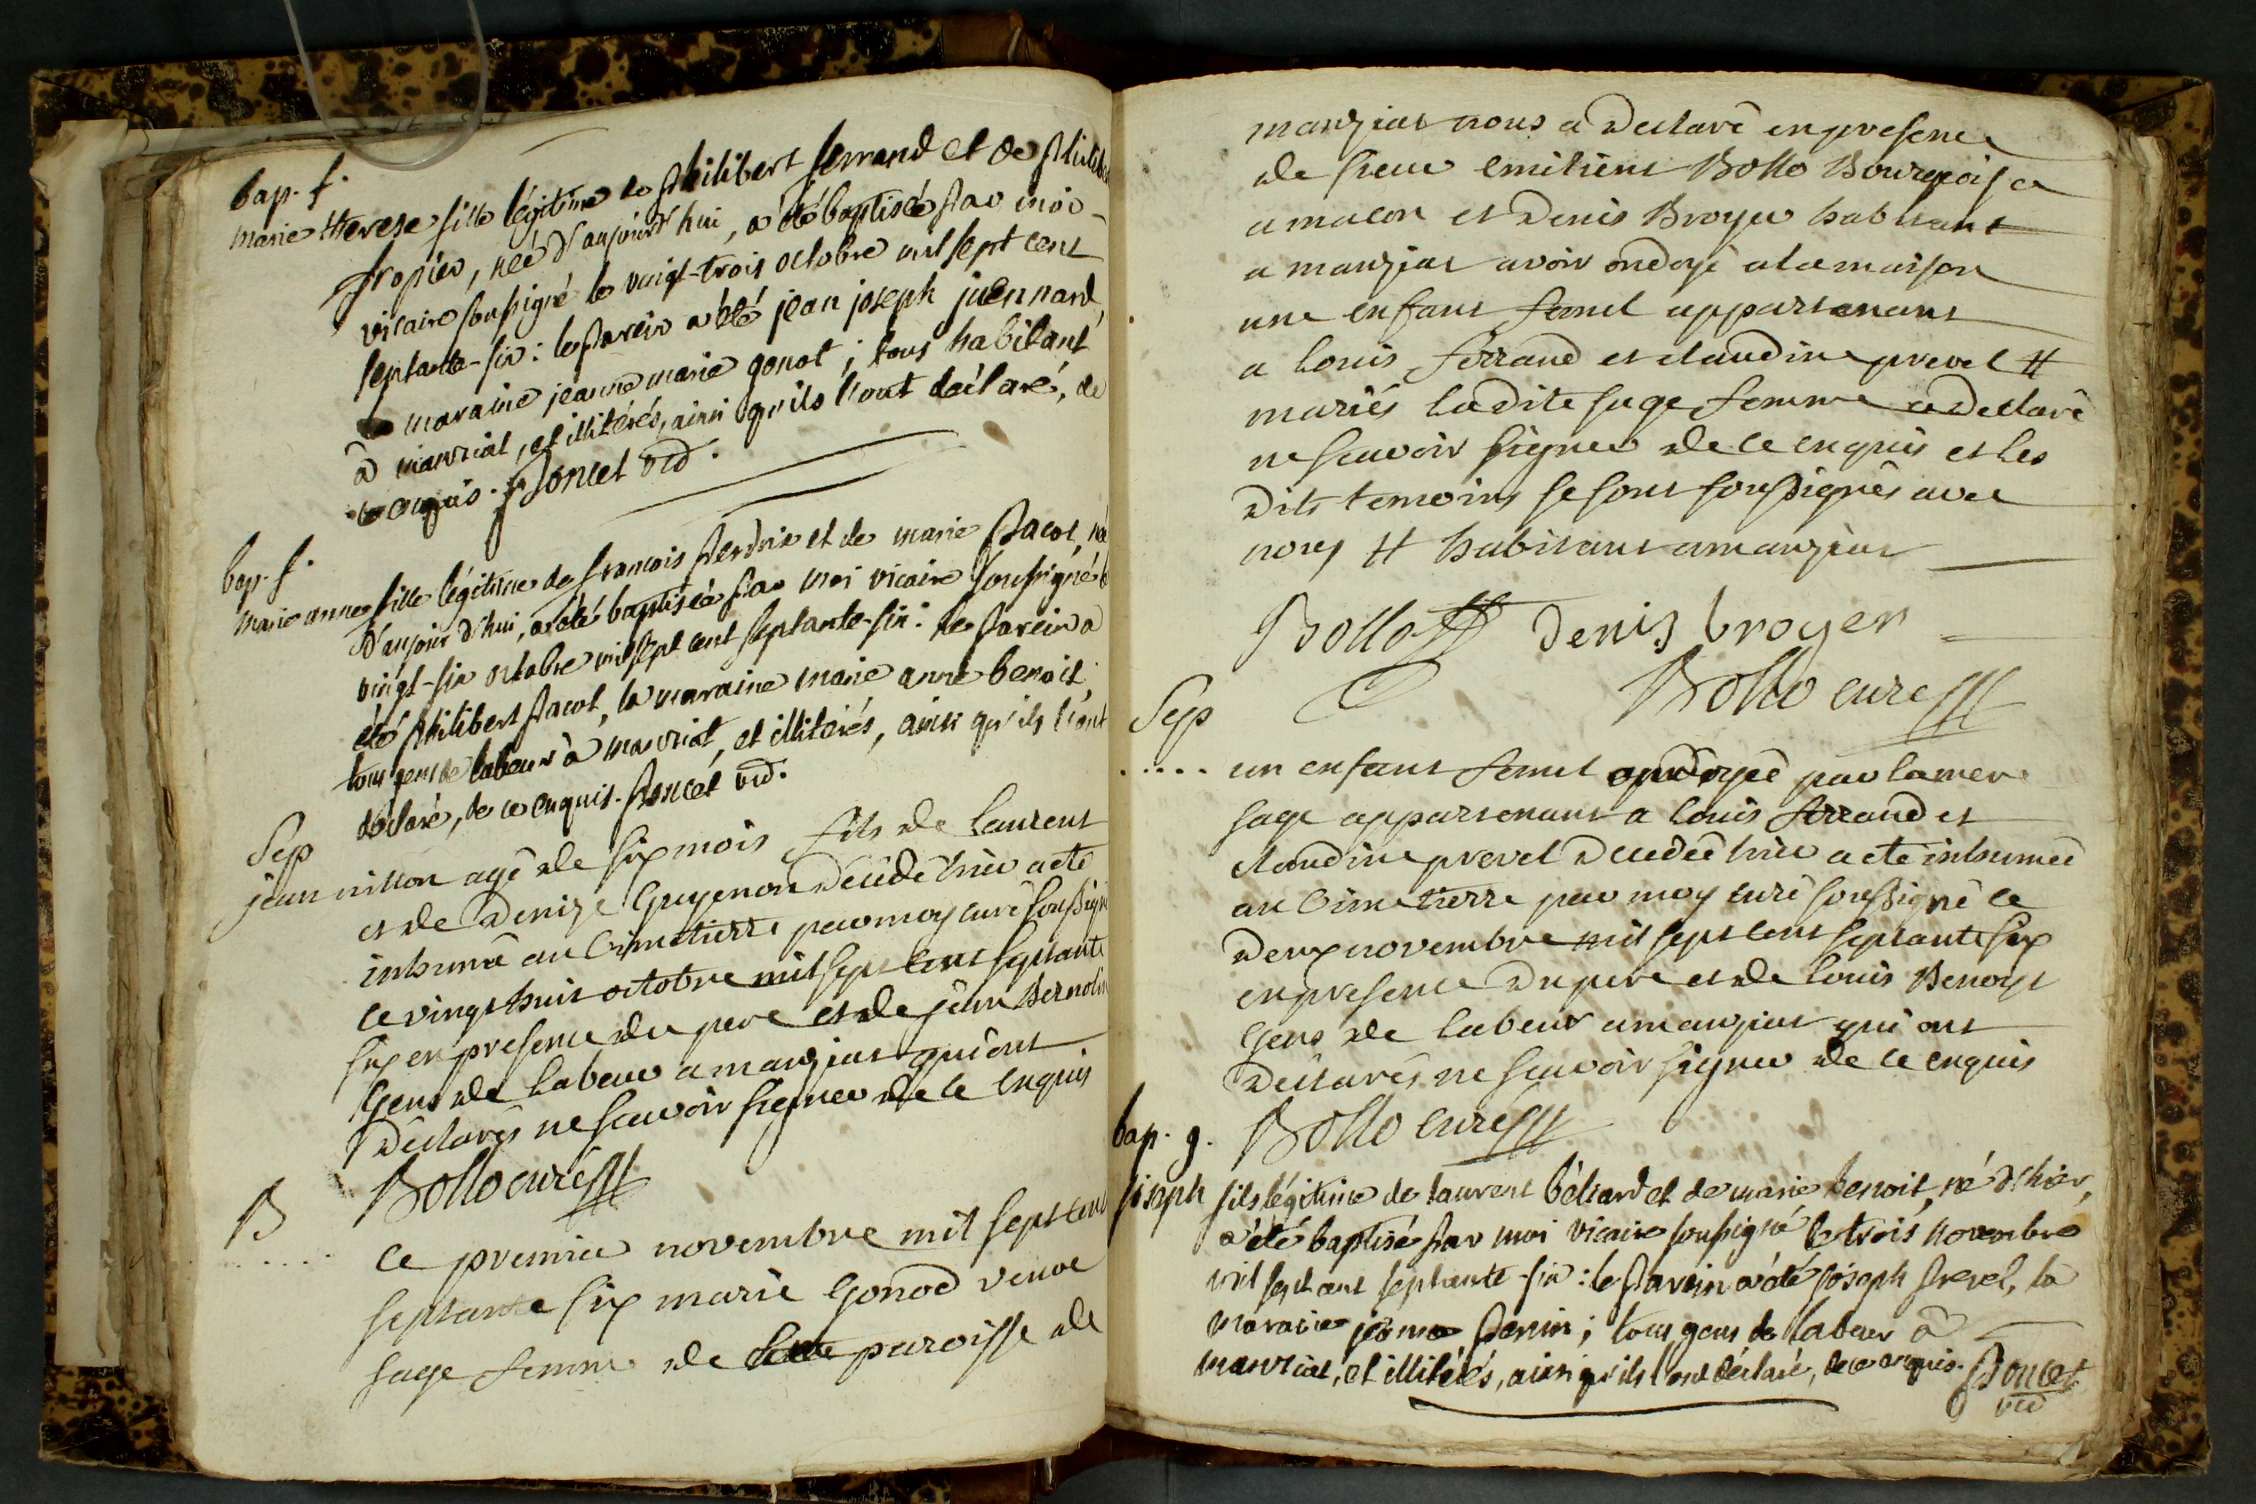 bap. f.
marie therese fille légitime de philibert ferrand et de philib
propier, née d'aujourd'hui, a été baptisée par moi
vicaire soussigné le vingt-trois octobre mil sept cent
septante-six: le parein a été jean joseph juennard,
la maraine jeanne marie gonot; tous habitant
à manziat, et illitérés, ainsi qu'ils l'ont déclaré, de
ce enquis. Poncet vic.
bap. f.
marie anne fille légitime de francois perdrix et de marie pacot, né
d'aujourd'hui, a été baptisée par moi vicaire soussigné le
vingt-six octobre mil sept cent septante-six: le parein a
été philibert pacot, la maraine marie anne benoit;
tous gens de labeur à manziat, et illitérés, ainsi qu'ils l'ont
déclaré, de ce enquis. Poncet vic.
Sep
jean nillon agé de six mois fils de laurent
et de denize guyenon décédé hier a eté
inhumé au Cimetierre par moy curé soussigné
le vingt huit octobre mil sept cent septante
six en presence du pere et de jean Bernolin
gens de labeur a manziat qui ont
declarés ne scavoir signer de ce enquis
Bollo curé
B
..... Ce premier novembre mil sept cent
septante six marie gonod veuve
sage femme de cette paroisse de
manziat nous a declaré en presence
de sieur emilient Bollo Bourgeois a
a macon et denis Broyer habitant
a manziat avoir ondoyé a la maison
une enfant femel appartenant
a louis ferrand et claudine prevel #
mariés ladite sage femme a declaré
ne scavoir signer de ce enquis et les
dits temoins se sont soussignés avec
nous # habitant a manziat
Bollo Denis broyer
Bollo curé
Sep
..... un enfant femel ondoyé par la mer
sage appartenant a louis ferrand et
claudine prevel decedeé hier a eté inhumeé
au Cimetierre par moy curé soussigné le
deux novembre mil sept cent septante six
en presence du pere et de louis Benoyt
gens de labeur a manziat qui ont
declarés ne scavoir signer de ce enquis
Bollo curé
bap. g.
joseph fils légitime de laurent béliard et de marie benoit, né d'hier,
a été baptisé par moi vicaire soussigné le trois novembre
mil sept cent septante-six: le parein a été joseph prevel, la
maraine jeanne perrin; tous gens de labeur à
manziat, et illitérés, ainsi qu'ils l'ont déclaré, de ce enquis. Poncet
vic